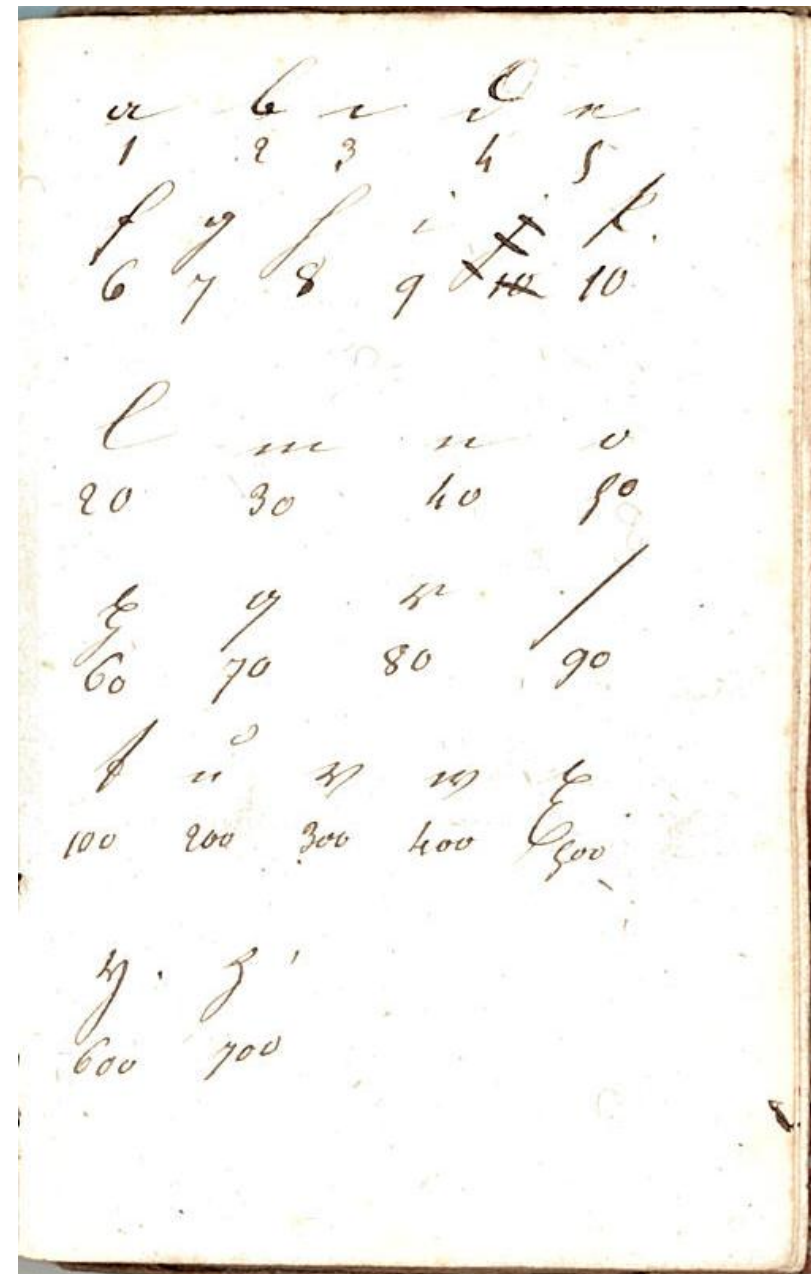 a b c d e
1 2 3 4 5
f g h i j k.
6 7 8 9 10 10
l m n o
20 30 40 50
p q r s
60 70 80 90
t u v w x
100 200 300 400 500
y. z
600 700